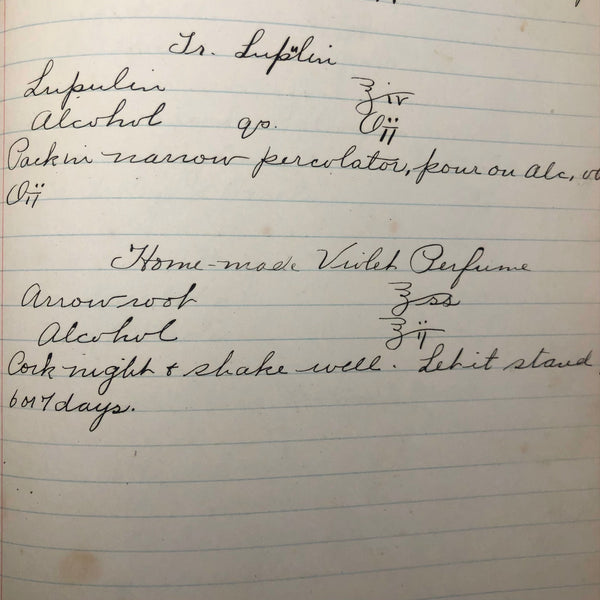 Tr. Lupulin
Lupulin ℥iv
Alcohol qs. Oii
Pack in narrow percolator, pour on Alc,
Oii
Home-made Violet Perfume
Arrowroot ℥ss
Alcohol ℥ii
Cork night & shake well. Let it stand
6 or 7 days.